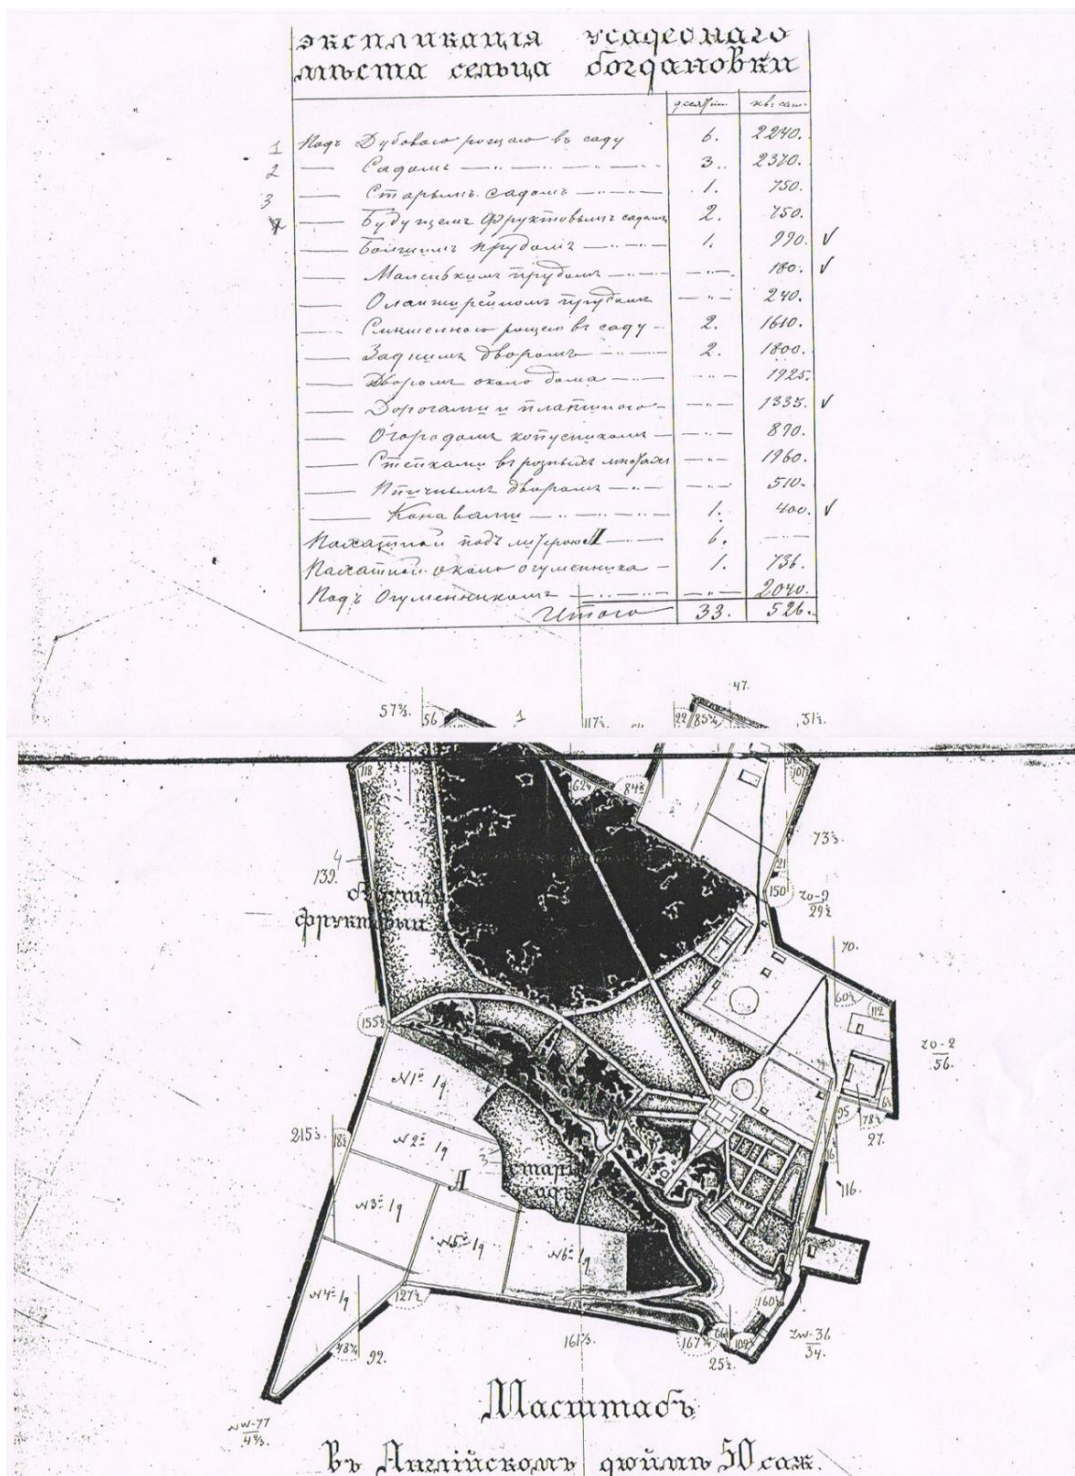 экспликація усадебнаго
мѣста сельца Богдановки
десятин. кв. саж.
1 Подъ Дубовою рощею въ саду 6. 2240.
2 — Садомъ 3. 2370.
3 — Старымъ садомъ 1. 750.
4 — Будущемъ Фруктовымъ садомъ 2. 750.
— Большимъ прудомъ 1. 990. √
— Маленькимъ прудомъ 180. √
— Оланжирейномъ прудомъ 240.
— Смѣшенною рощею въ саду 2. 1610.
— Заднимъ дворомъ 2. 1800.
— Дворомъ около дома 1925.
— Дорогами и платиною 1335. √
— Огородомъ копусникомъ 890.
— Стенками въ розныхъ мѣстахъ 1960.
— Птичнымъ дворомъ 510.
— Конавами 1. 400. √
Пахатной подъ литерою А 6.
Пахатной около огуменника 1. 736.
Подъ Огуменникомъ 2040.
Итого 33. 526.
47.
57⅔. 56 1 117½. 22 85¾ 51½.
118 62½ 84½ 101
6 73⅓.
4 21
139. 150 zo-9
будущій 29½
фруктовый
70.
60½ 112
155½ zo-2
56.
№1º 1q
95 78½
215⅓. 18½ №2º 1q 27.
3 старый 16
А садъ 116.
№3º 1q
№5º 1q №6º 1q
№4º 1q 127½ 160½
161⅔. 167¼ 66 109½ zw-36
48¼ 92. 25½. 34.
NW-77
4⅔.
Масштабъ
Въ Англійскомъ дюймѣ 50 саж.